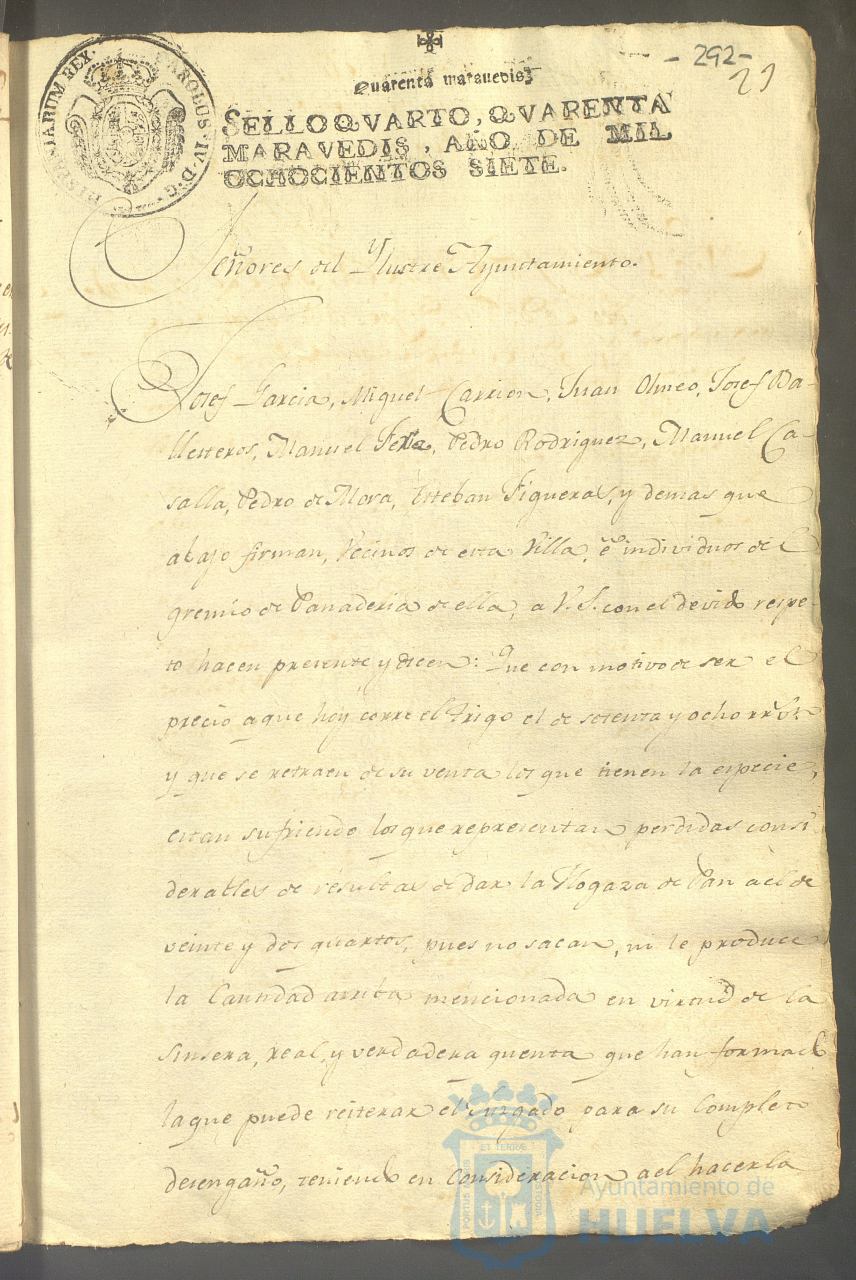 -292-
29
Quarenta marauedis
SELLO QVARTO, QVARENTA
MARAVEDIS, AÑO DE MIL
OCHOCIENTOS SIETE.
CAROLUS IV D.G. HISPANIARUM REX
Señores del Ylustre Ayuntamiento.
Josef Garcia, Miguel Carrion, Juan Olmeo, Josef Ba-
llesteros, Manuel Pedro Rodriguez, Manuel Ca-
salla, Pedro de Mora, Esteban Figueras, y demas que
abajo firman, Vecinos de esta Villa, é individuos del
gremio de Panaderia de ella, a V.S. con el devido respe-
to hacen presente y dicen: Que con motivo de ser el
precio a que hoy corre el trigo el de setenta y ocho rr.
y que se retraen de su venta los que tienen la especie,
estan sufriendo los que representan perdidas consi
derables de resultas de dar la Hogaza de Pan á el de
veinte y dos quartos, pues no sacan, ni le produce
la Cantidad arriba mencionada en virtud de la
sinsera, real, y verdadera quenta que han formado
la que puede reiterar el Juzgado para su completo
desengaño, teniendo en consideracion a el hacerla
Ayuntamiento de
HUELVA